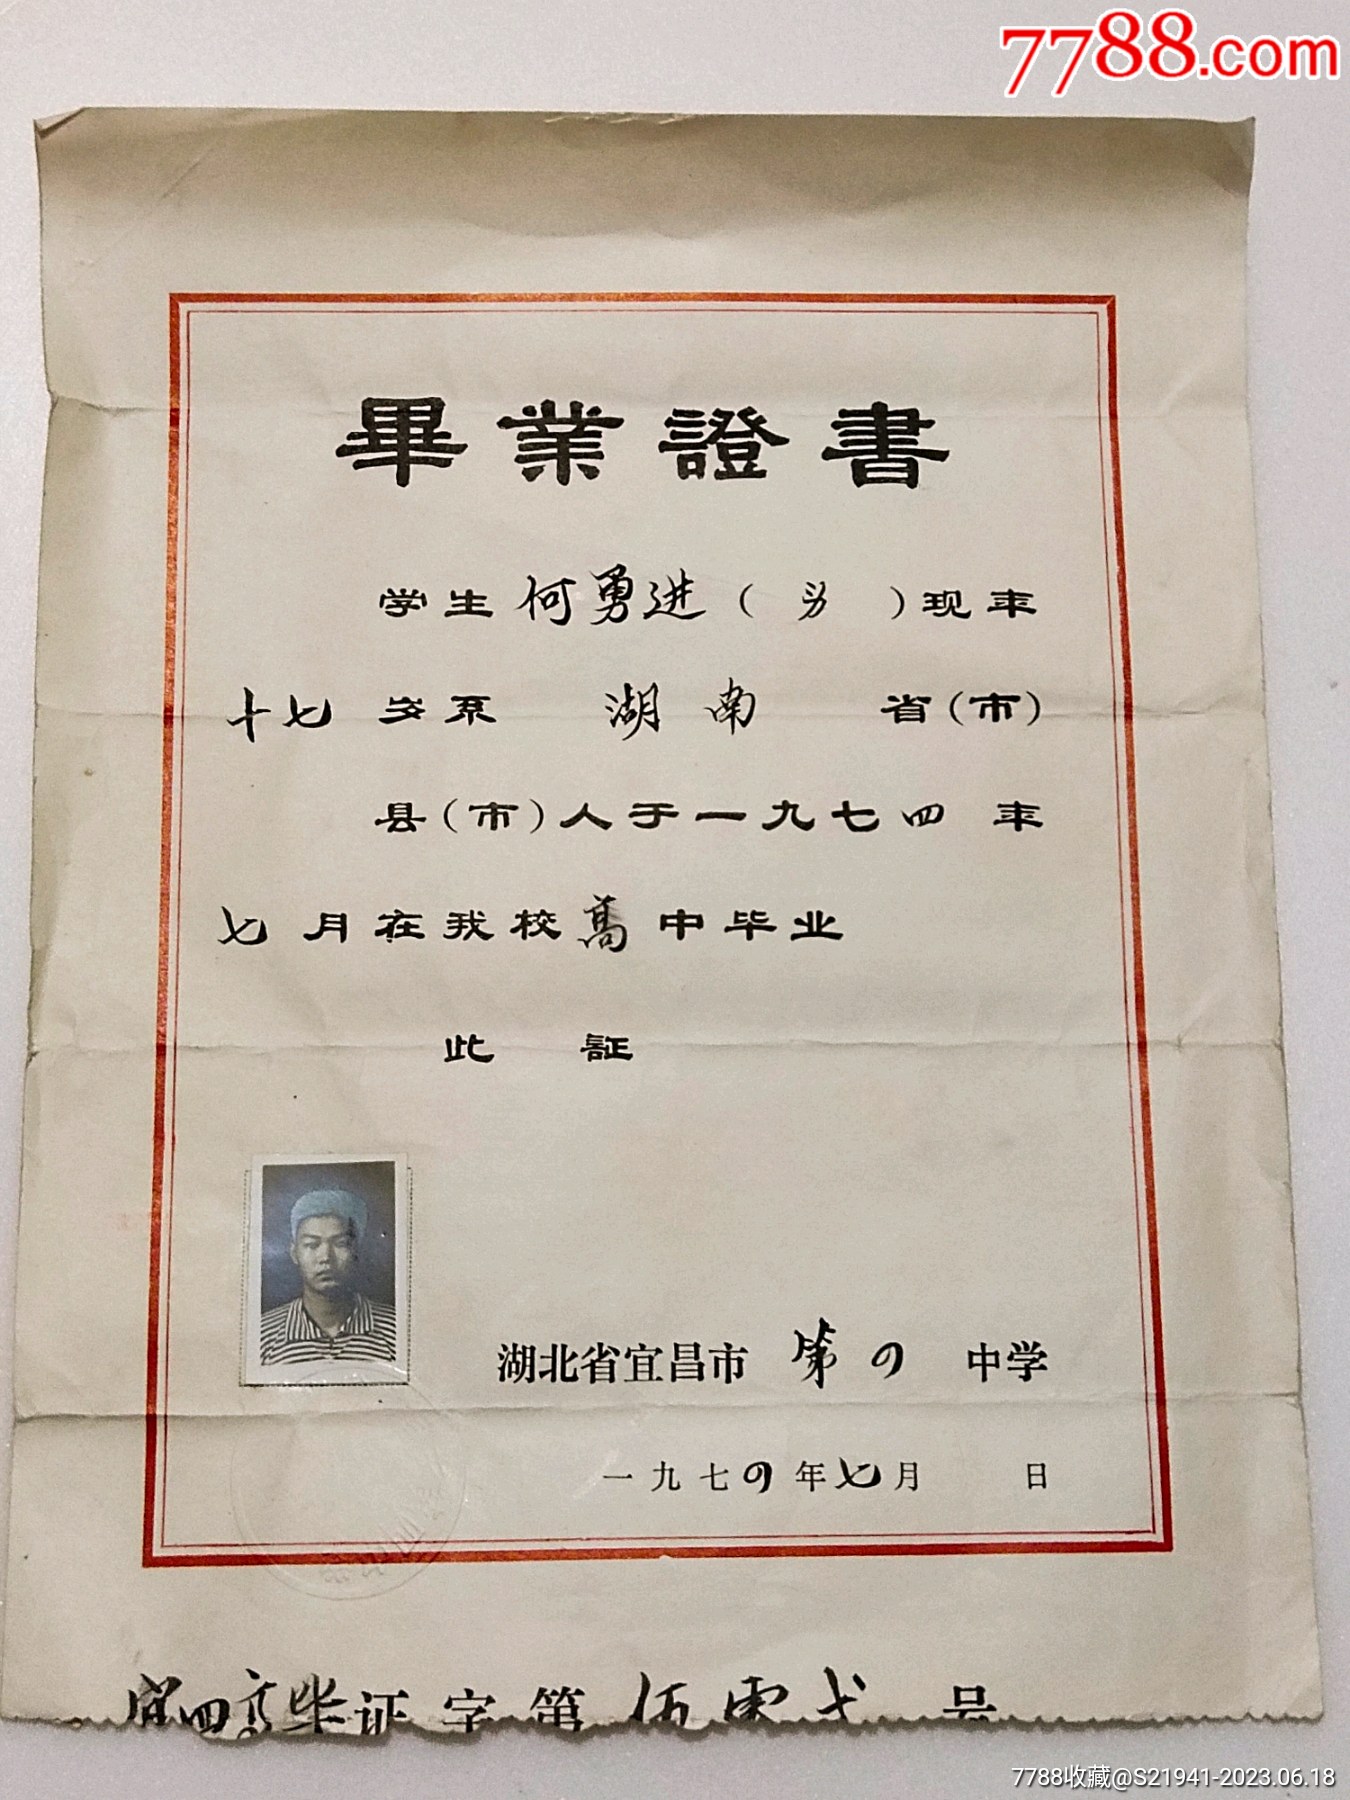 7788.com
畢業證書
学生何勇进(男)现年
十七岁系湖南省(市)
县(市)人于一九七四年
七月在我校高中毕业
此証
湖北省宜昌市第四中学
一九七四年七月 日
宜四高毕证字第伍零弍号
7788收藏@S21941-2023.06.18